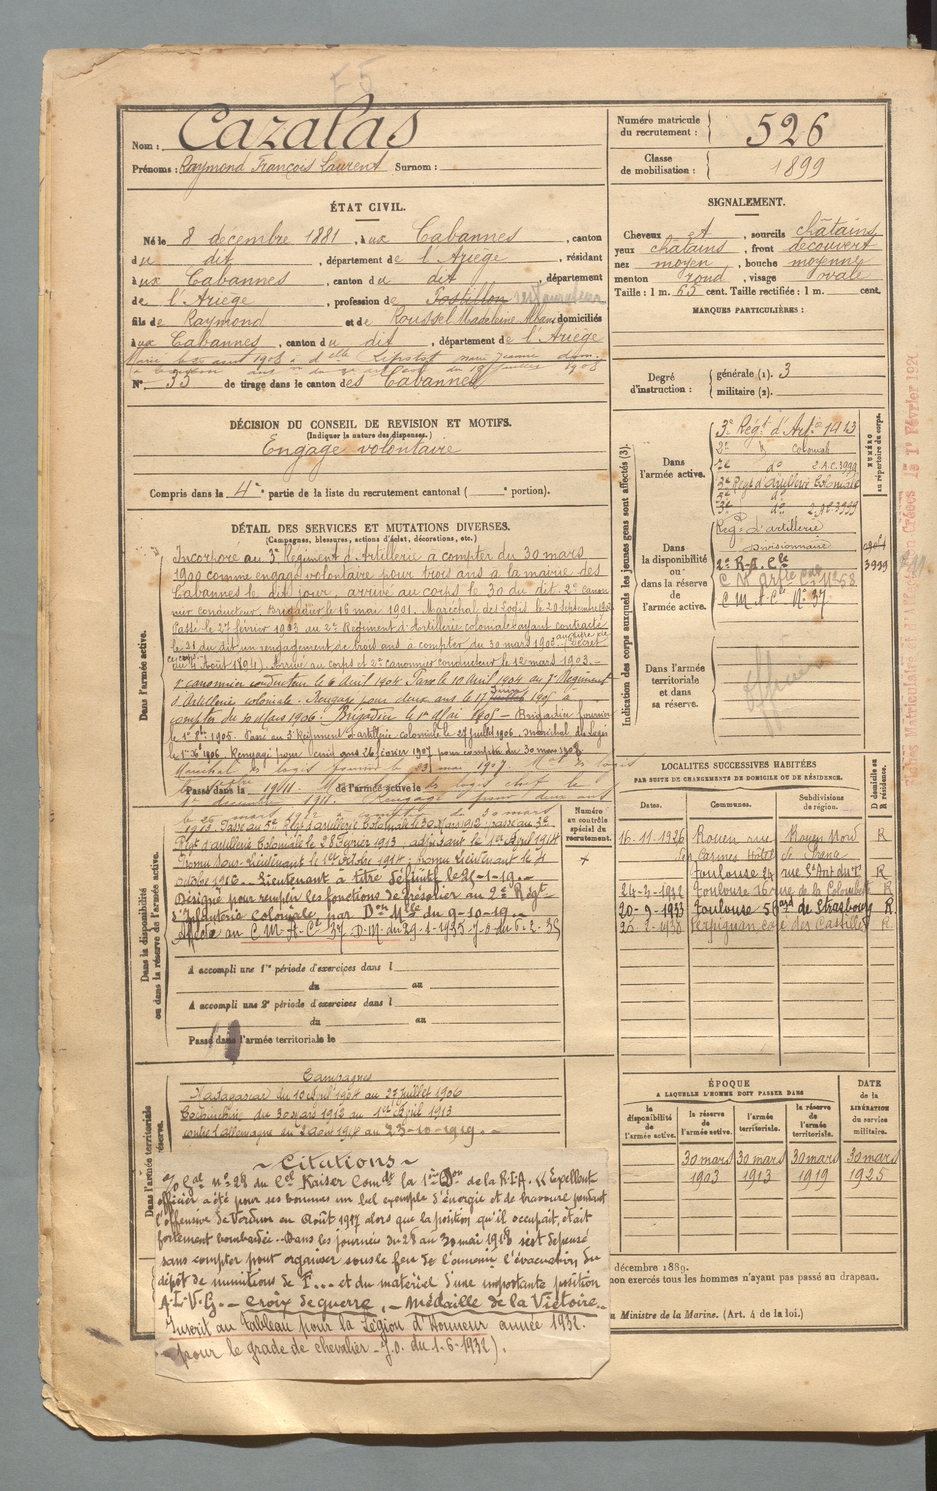 Nom : Cazalas
Prénoms : Raymond François Laurent Surnom :
Numéro matricule du recrutement : 526
Classe de mobilisation : 1899
ÉTAT CIVIL.
Né le 8 décembre 1881, à ux Cabannes, canton
du dit, département de l'Ariège, résidant
à ux Cabannes, canton du dit, département
de l'Ariège, profession de Postillon
fils de Raymond et de Roussel Madeleine domiciliés
à ux Cabannes, canton du dit, département de l'Ariège
Marié le août 1908 à dlle Marie Jeanne
N° 33 de tirage dans le canton des Cabannes
SIGNALEMENT.
Cheveux , sourcils châtains
yeux châtains, front découvert
nez moyen, bouche moyenne
menton rond, visage ovale
Taille : 1 m. 63 cent. Taille rectifiée : 1 m. cent.
MARQUES PARTICULIÈRES :
Degré d'instruction : générale (1). 3
militaire (2).
DÉCISION DU CONSEIL DE REVISION ET MOTIFS.
(Indiquer la nature des dispenses.)
Engagé volontaire
Compris dans la 4e partie de la liste du recrutement cantonal ( e portion).
DÉTAIL DES SERVICES ET MUTATIONS DIVERSES.
(Campagnes, blessures, actions d'éclat, décorations, etc.)
Dans l'armée active.
Incorporé au 3e Régiment d'Artillerie à compter du 30 mars
1900 comme engagé volontaire pour trois ans à la mairie des
Cabannes le dit jour, arrivé au corps le 30 du dit. 2e canon
nier conducteur. Brigadier le 16 mai 1901. Maréchal des Logis le 20 septembre
Passé le 27 février 1903 au 2e Régiment d'Artillerie coloniale ayant contracté
le 21 du dit un rengagement de trois ans à compter du 30 mars 1903
du 4 Août 1894). Arrivé au corps et 2e canonnier conducteur le 12 mars 1903.
1er canonnier conducteur le 6 Avril 1904. Passé le 10 Avril 1904 au 7e Régiment
d'Artillerie coloniale. Rengagé pour deux ans le 17 juin 1905 à
compter du 30 Mars 1906. Brigadier le 1er Mai 1905 - Brigadier fourrier
le 1er 8bre 1905. Passé au 3e Régiment d'artillerie coloniale le 27 juillet 1906. Maréchal des Logis
le 1er 1906. Rengagé pour ans 26 février 1907 pour compter du 30 mars 1908
Maréchal des logis fourrier le 31 mai 1907. Mal des logis
Passé dans l de l'armée active le
1911. Mal des logis chef le
1er décembre 1911. Rengagé pour deux ans
le 20 mars à compter du 30 mars
1912. Passé au 5e Régt d'artillerie Coloniale le 30 Mars 1912; passé au 3e
Régt d'artillerie Coloniale le 28 Février 1913, adjudant le 1er Avril 1914
Promu Sous-Lieutenant le 1er octobre 1914; promu Lieutenant le
octobre 1916. - Lieutenant à titre définitif le 25-1-19.
Désigné pour remplir les fonctions de trésorier au 2e Régt
d'Infanterie coloniale par Don Mlle du 9-10-19.
Affecté au C M A Cl 37 D.M. du 29-1-1935 J.O du 6-2-35
Numéro au contrôle spécial du recrutement.
Dans la disponibilité ou dans la réserve de l'armée active.
A accompli une 1re période d'exercices dans l
du au
A accompli une 2e période d'exercices dans l
du au
Passé dans l'armée territoriale le
Dans l'armée territoriale
Campagnes
Madagascar du 10 Avril 1904 au 27 Juillet 1906
Cochinchine du 30 Mars 1912 au 1er Avril 1913
contre l'allemagne du 2 Août 1914 au 23-10-1919.
~ Citations ~
n° 28 du Cel Kaiser Comdt la 1re Don de la R.I.A. "Excellent
officier a été pour ses hommes un bel exemple d'énergie et de bravoure pendant
l'offensive de Verdun en Août 1917 alors que la position qu'il occupait, était
fortement bombardée. Dans les journées du 28 au 30 mai 1918 s'est dépensé
sans compter pour organiser sous le feu de l'ennemi l'évacuation du
dépôt de munitions de F... et du matériel d'une importante position
A.L.V.G. - Croix de guerre. - Médaille de la Victoire.
Inscrit au tableau pour la Légion d'Honneur année 1932.
pour le grade de chevalier - J.O. du 1-6-1932).
Indication des corps auxquels les jeunes gens sont affectés (3).
NUMÉRO au répertoire du corps.
Dans l'armée active.
3e Régt d'Art 1413
coloniale
do 2.A.C. 3999
3e Régt d'Artillerie Coloniale
do 3999
Dans la disponibilité ou dans la réserve de l'armée active.
Regt d'artillerie
divisionnaire
2e R.A.Cle 3999
C M Artie Cale N° 58
C M A Cle N° 37
Dans l'armée territoriale et dans sa réserve.
Officier
LOCALITÉS SUCCESSIVES HABITÉES
PAR SUITE DE CHANGEMENTS DE DOMICILE OU DE RÉSIDENCE.
Dates. Communes. Subdivisions de région. D domicile ou R résidence.
16.11.1926 Rouen rue Rouen Nord R
des Carmes Hôtel de France
Toulouse 24 rue St Ant du T R
24-3-1932 Toulouse 16 rue de la Colombette R
20-9-1933 Toulouse 56 Bard de Strasbourg R
Perpignan café des Castillet R
ÉPOQUE
A LAQUELLE L'HOMME DOIT PASSER DANS
DATE DE LA LIBÉRATION du service militaire.
la disponibilité de l'armée active. la réserve de l'armée active. l'armée territoriale. la réserve de l'armée territoriale.
30 mars 30 mars 30 mars 30 mars
1903 1913 1919 1925
décembre 1889.
non exercés tous les hommes n'ayant pas passé au drapeau.
Ministre de la Marine. (Art. 4 de la loi.)